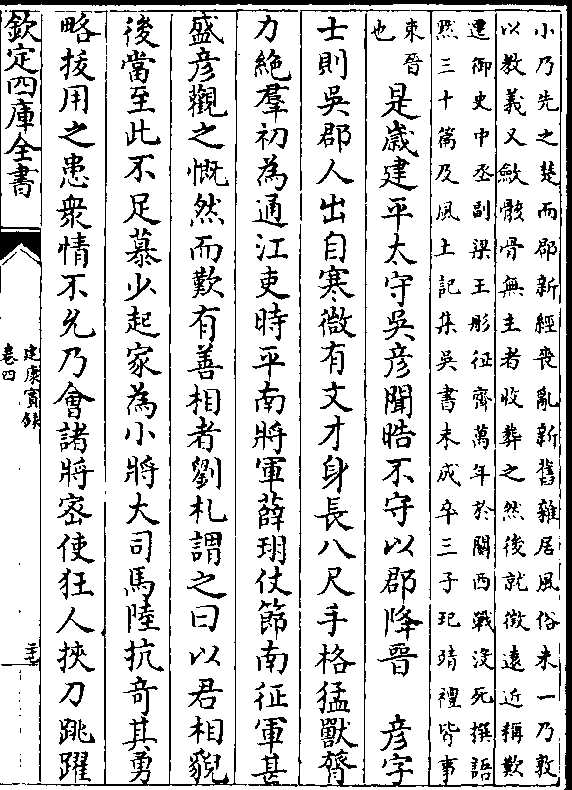 小乃先之楚而郡新經喪亂新舊雜居風俗未一乃敦
以教義又斂骸骨無主者收葬之然後就徵遠近稱歎
遷御史中丞副梁王肜征齊萬年於關西戰沒死撰語
黙三十篇及風土記集吳書未成卒三子玘靖禮皆事
東晉
也
是歲建平太守吳彥聞晧不守以郡降晉　彥字
士則吳郡人出自寒微有文才身長八尺手格猛獸膂
力絶羣初為通江吏時平南將軍薛珝仗節南征軍甚
盛彥觀之慨然而歎有善相者劉札謂之曰以君相貌
後當至此不足慕少起家為小將大司馬陸抗奇其勇
略拔用之患衆情不允乃會諸將宻使狂人挾刀跳躍
欽定四庫全書
建康實錄
卷四